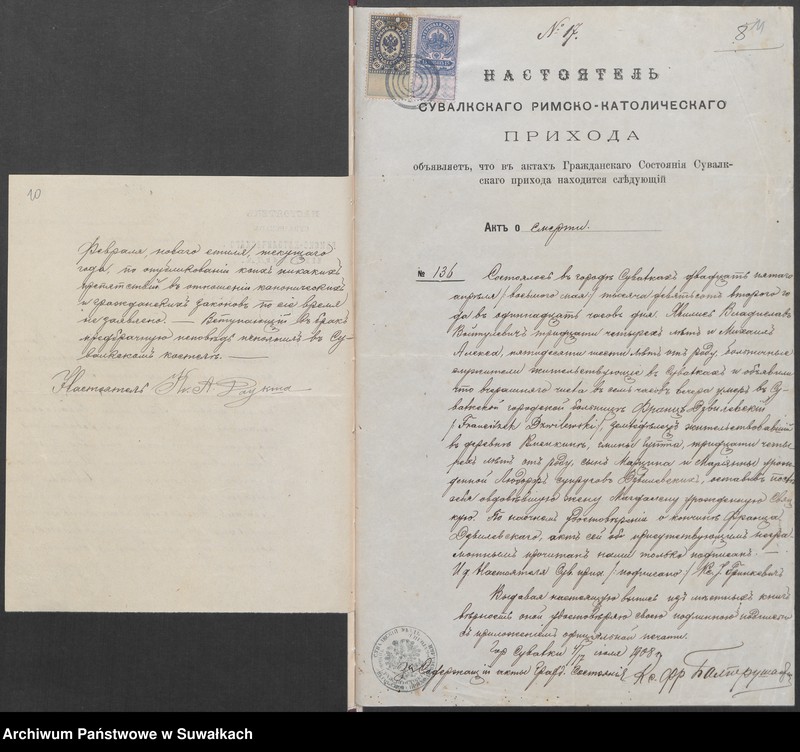 10
Февраля, новаго стиля, текущаго
года, по опубликованiи коихъ никакихъ
препятствiй въ отношенiи каноническихъ
и гражданскихъ законовъ по сiе время
не заявлено. — Вступающiй въ бракъ
предбрачную исповѣдь исполнилъ въ Су-
валкскомъ костелѣ. —
Настоятель Кс. А
№ 17.
8
НАСТОЯТЕЛЬ
СУВАЛКСКАГО РИМСКО-КАТОЛИЧЕСКАГО
ПРИХОДА
объявляетъ, что въ актахъ Гражданскаго Состоянiя Сувалк-
скаго прихода находится слѣдующiй
Актъ о смерти.
№ 136 Состоялось въ городѣ Сувалкахъ двадцать пятаго
апрѣля /восьмого мая/ тысяча девятьсотъ второго го-
да въ одиннадцать часовъ дня. Явились Владиславъ
Войтулевичъ тридцати четырехъ лѣтъ и Михаилъ
Алекса, пятидесяти шести лѣтъ отъ роду, больничные
служители жительствующiе въ Сувалкахъ и объявили
что вчерашняго числа въ семь часовъ вечера умеръ въ Су-
валкской городской больницѣ Францъ Дзвилевскiй
/Franciszek Dzwilewski/, земледѣлецъ жительствовавшiй
въ деревнѣ гмины тридцати четы-
рехъ лѣтъ отъ роду, сынъ Мартина и Марiанны урож-
денной супруговъ Дзвилевскихъ, оставивъ послѣ
себя овдовѣвшую жену Магдалену урожденную
По настоящемъ удостовѣренiи о кончинѣ Франца
Дзвилевскаго, актъ сей объ присутствующимъ негра-
мотнымъ прочитанъ нами только подписанъ. —
И. д. Настоятеля Сув. прих. /подписано/ Кс. I. Гринкевичъ
Выдавая настоящую выпись изъ мѣстныхъ книгъ
вѣрность оной удостовѣряю своею подлинной подписью
съ приложенiемъ оффицiальной печати.
Гор. Сувалки июля 1908 г.
Содержащiй акты Гражд. Состоянiя Кс. Фр.
Archiwum Państwowe w Suwałkach